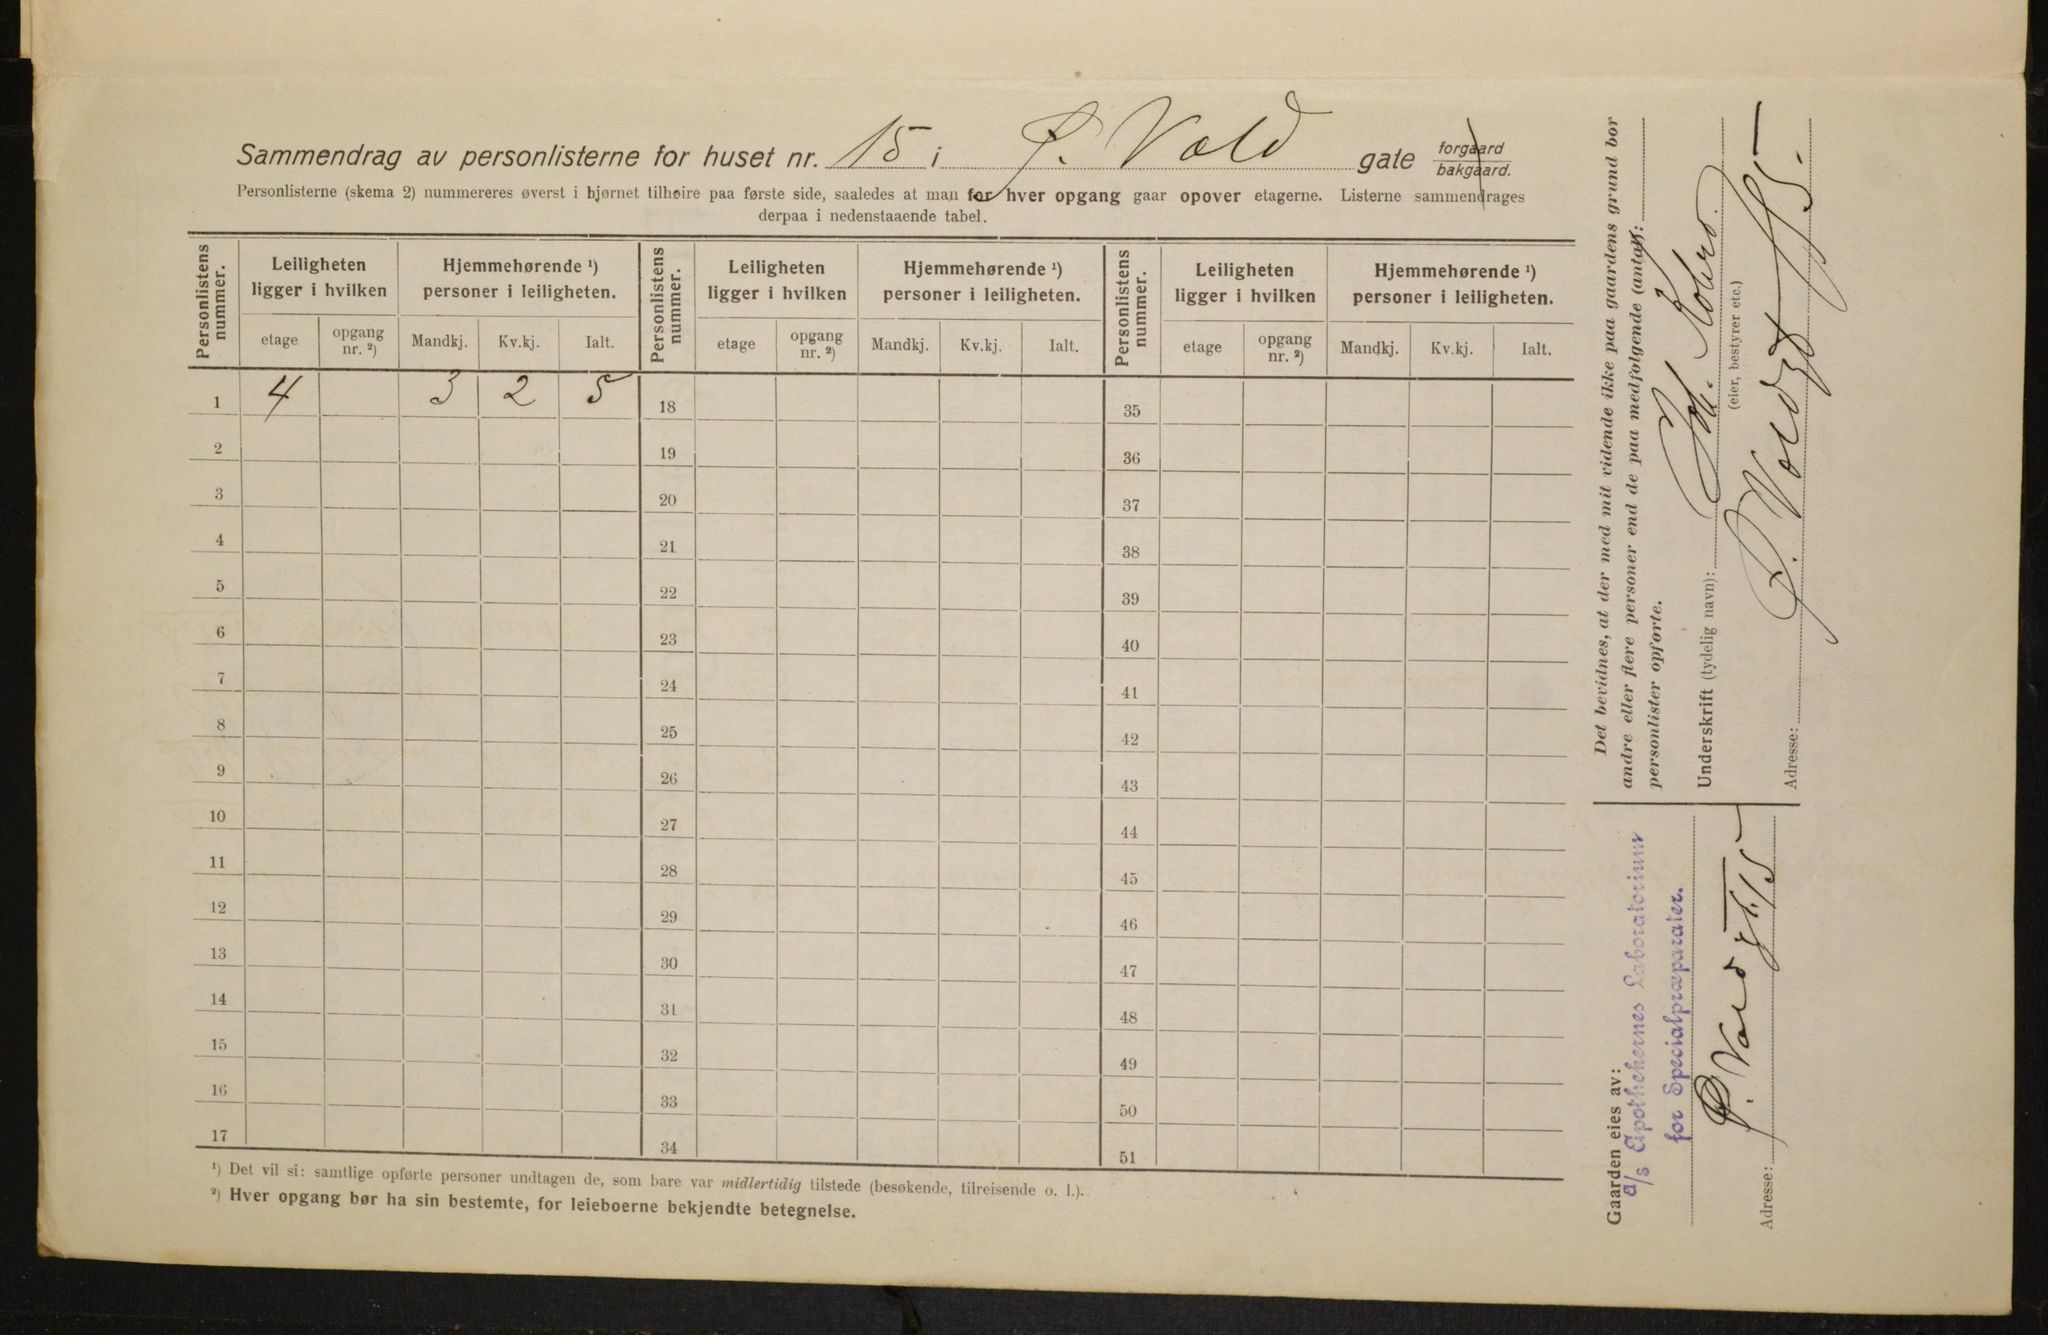 Sammendrag av personlisterne for huset nr. 15 i Ø. Vold gate forgaard bakgaard.
Personlisterne (skema 2) nummereres øverst i hjørnet tilhøire paa første side, saaledes at man for hver opgang gaar opover etagerne. Listerne sammendrages
derpaa i nedenstaaende tabel.
Personlistens nummer. Leiligheten ligger i hvilken Hjemmehørende ¹) personer i leiligheten. Personlistens nummer. Leiligheten ligger i hvilken Hjemmehørende ¹) personer i leiligheten. Personlistens nummer. Leiligheten ligger i hvilken Hjemmehørende ¹) personer i leiligheten.
etage opgang nr. ²) Mandkj. Kv.kj. Ialt. etage opgang nr. ²) Mandkj. Kv.kj. Ialt. etage opgang nr. ²) Mandkj. Kv.kj. Ialt.
1 4 3 2 5 18 35
2 19 36
3 20 37
4 21 38
5 22 39
6 23 40
7 24 41
8 25 42
9 26 43
10 27 44
11 28 45
12 29 46
13 30 47
14 31 48
15 32 49
16 33 50
17 34 51
¹) Det vil si: samtlige opførte personer undtagen de, som bare var midlertidig tilstede (besøkende, tilreisende o. l.).
²) Hver opgang bør ha sin bestemte, for leieboerne bekjendte betegnelse.
Det bevidnes, at der med mit vidende ikke paa gaardens grund bor
andre eller flere personer end de paa medfølgende (antal):
personlister opførte.
Underskrift (tydelig navn):
(eier, bestyrer etc.)
Adresse: Ø. Voldgt 15.
Gaarden eies av:
A/s Apothekernes Laboratorium
for Specialpræparater.
Adresse: Ø. Voldgt. 15